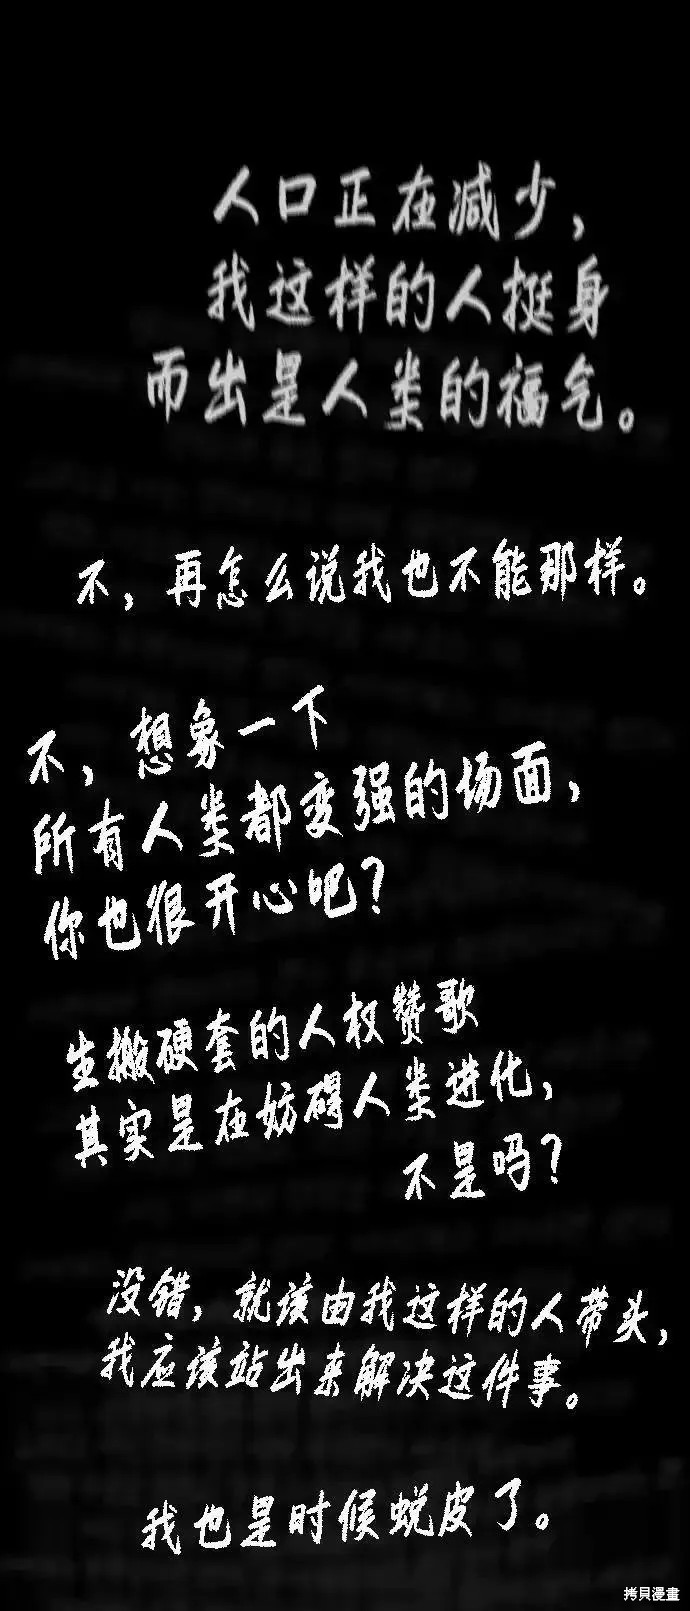 人口正在减少，
我这样的人挺身
而出是人类的福气。
不，再怎么说我也不能那样。
不，想象一下
所有人类都变强的场面，
你也很开心吧？
生搬硬套的人权赞歌
其实是在妨碍人类进化，
不是吗？
没错，就该由我这样的人带头，
我应该站出来解决这件事。
我也是时候蜕皮了。
拷貝漫畫